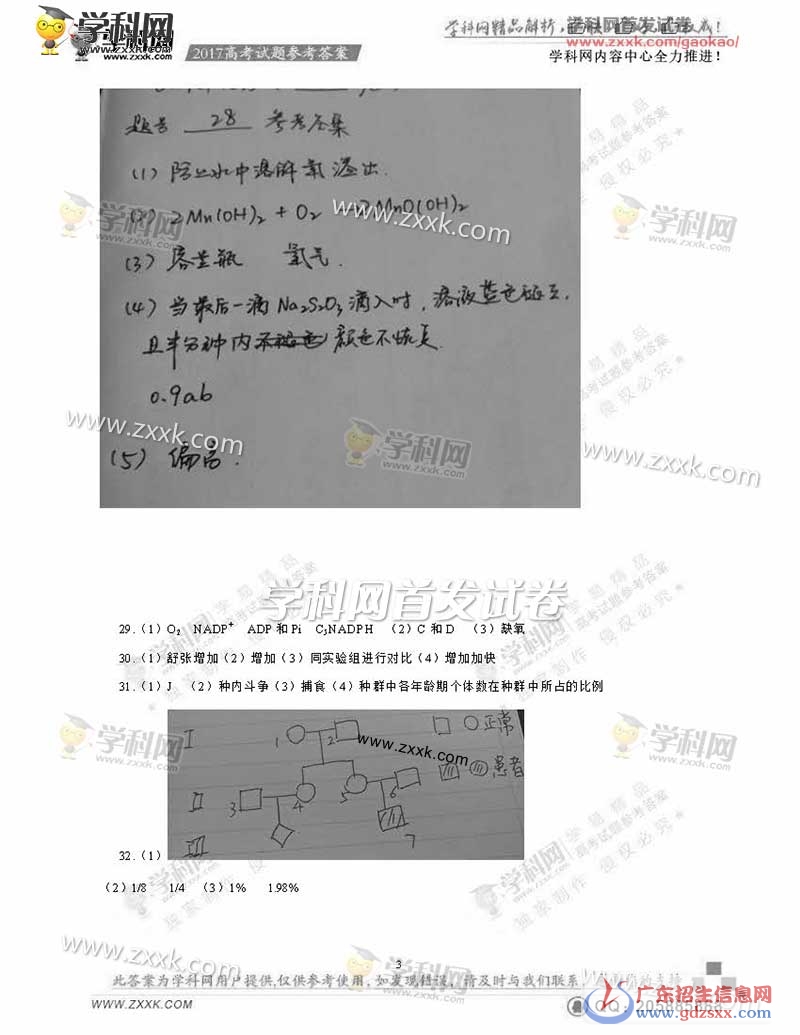 学科网
www.zxxk.com
2017高考试题参考答案
学科网精品解析,
学科网首发试卷
www.zxxk.com/gaokao/
学科网内容中心全力推进!
题号 28 参考答案
(1) 防止水中溶解氧溢出.
(2) 2Mn(OH)2 + O2 2MnO(OH)2
(3) 容量瓶 氮气.
(4) 当最后一滴Na2S2O3滴入时,溶液蓝色褪去,
且半分钟内 颜色不恢复
0.9ab
(5) 偏高.
学科网首发试卷
29.(1) O₂ NADP⁺ ADP和Pi C₅NADPH (2) C和D (3)缺氧
30.(1)舒张增加(2)增加(3)同实验组进行对比(4)增加加快
31.(1) J (2)种内斗争(3)捕食(4)种群中各年龄期个体数在种群中所占的比例
I 1 2 正常
患者
II 3 4 5 6
III 7
32.(1)
(2) 1/8 1/4 (3) 1% 1.98%
3
此答案为学科网用户提供,仅供参考使用,如发现错误,请及时与我们联系,
WWW.ZXXK.COM
广东招生信息网
www.gdzsxx.com